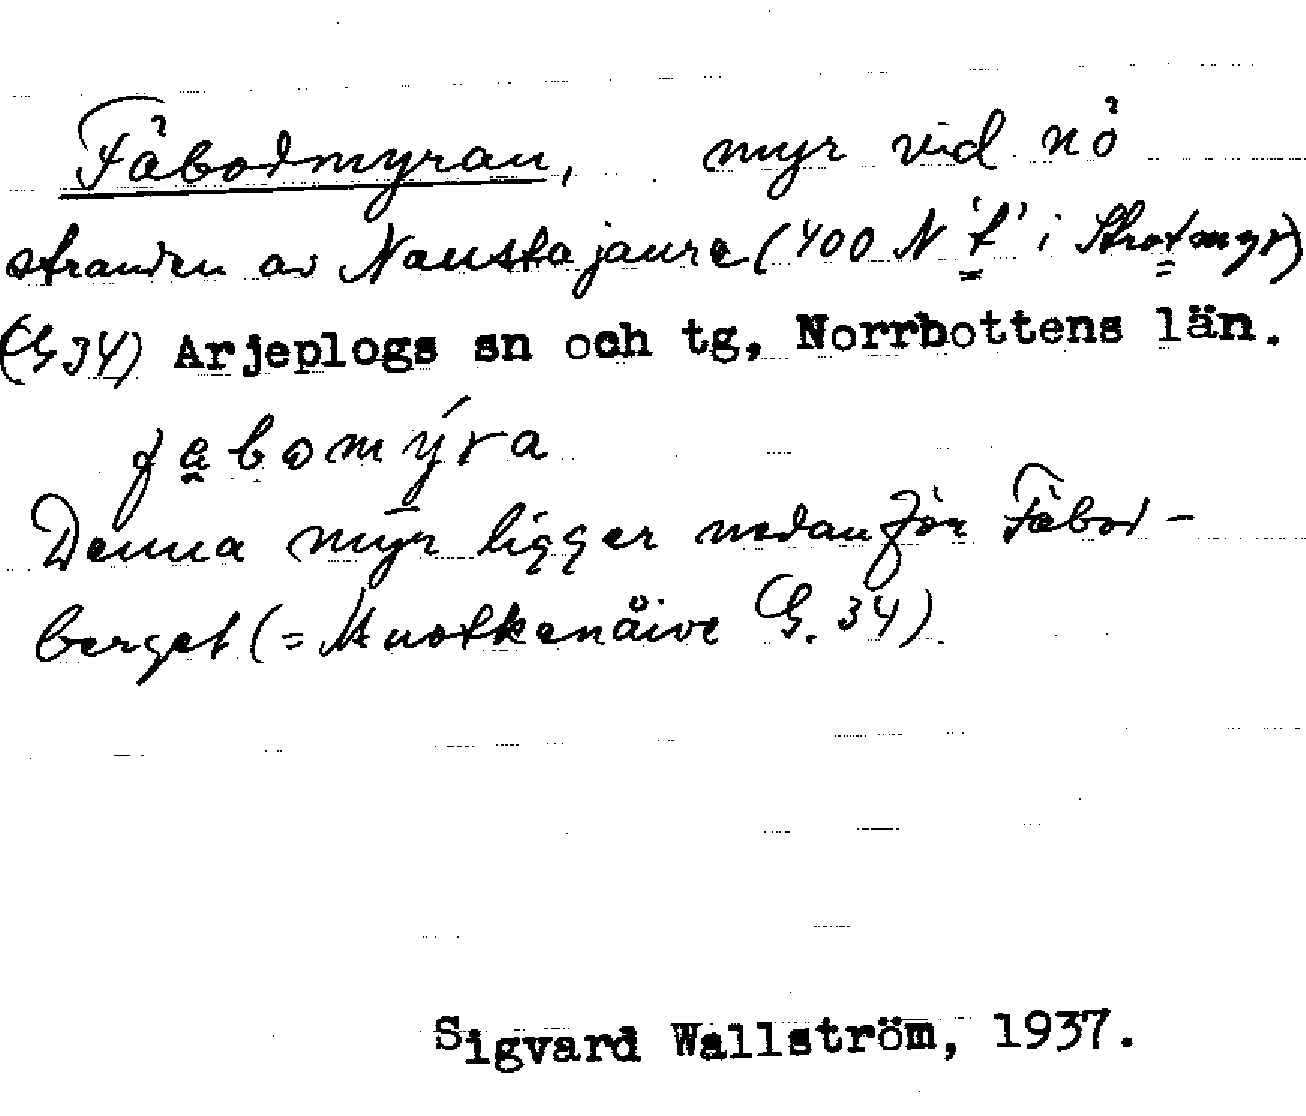 Fäbodmyran, myr vid nö
stranden av Naustajaure (400 N 't' i Strotmyr)
(G 34) Arjeplogs sn och tg, Norrbottens län.
fabomýra
Denna myr ligger nedanför Fäbod-
berget (= Muotkenäive G. 34).
Sigvard Wallström, 1937.